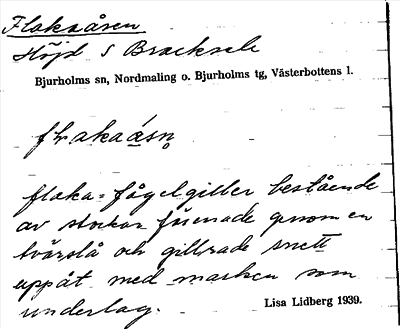 Flakaåsen
Höjd S Bracksele
Bjurholms sn, Nordmaling o. Bjurholms tg, Västerbottens l.
flakaåsn̥
flaka = fågelgiller bestående
av stockar förenade genom en
tvärslå och gillrade snett
uppåt med marken som
underlag.
Lisa Lidberg 1939.